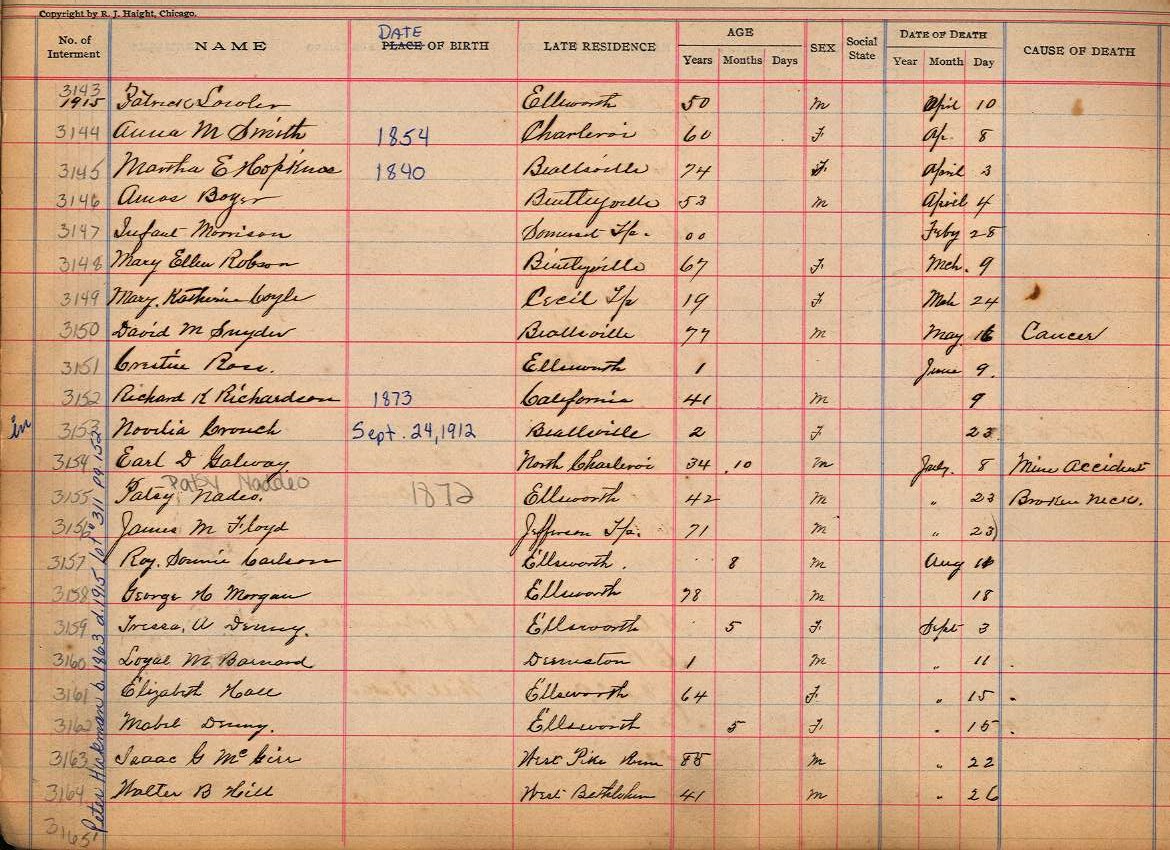 Copyright by R. J. Haight, Chicago.
No. of Interment NAME DATE PLACE OF BIRTH LATE RESIDENCE AGE Years Months Days SEX Social State DATE OF DEATH Year Month Day CAUSE OF DEATH
3143
1915 Patrick Lowler Ellsworth 50 M April 10
3144 Anna M Smith 1854 Charleroi 60 F Ap. 8
3145 Martha E Hopkins 1840 Beallsville 74 F April 3
3146 Amos Boyer Bentleyville 53 M April 4
3147 Infant Morrison Somerset Tp. 00 Feby 28
3148 Mary Ellen Robson Bentleyville 67 F Mch. 9
3149 Mary Katherine Coyle Cecil Tp 19 F Mch 24
3150 David M Snyder Beallsville 77 M May 16 Cancer
3151 Cristine Ross. Ellsworth 1 June 9.
3152 Richard K Richardson 1873 California 41 M 9
in 3153 Novilia Crouch Sept. 24, 1912 Beallsville 2 F 23
3154 Earl D Galway North Charleroi 34 10 M July. 8 Mine Accident
Patsy Naddeo
3155 Patsy Nadeo. 1872 Ellsworth 42 M " 23 Broken Neck.
3156 James M Floyd Jefferson Tp. 71 M " 23
3157 Roy Carlson Ellsworth. 8 M Aug 11
3158 George H Morgan Ellsworth 78 M 18
3159 Tressa. A Denny. Ellsworth 5 F Sept 3
3160 Loyal M Barnard Deemston 1 M " 11
3161 Elizabeth Hall Ellsworth 64 F " 15
3162 Mabel Denny. Ellsworth 5 F " 15
3163 Isaac G McGirr West Pike Run 85 M " 22
3164 Walter B Hill West Bethlehem 41 M " 26
3165
Peter Hackman b. 1863 d. 1915 Lot # 311 pg 152